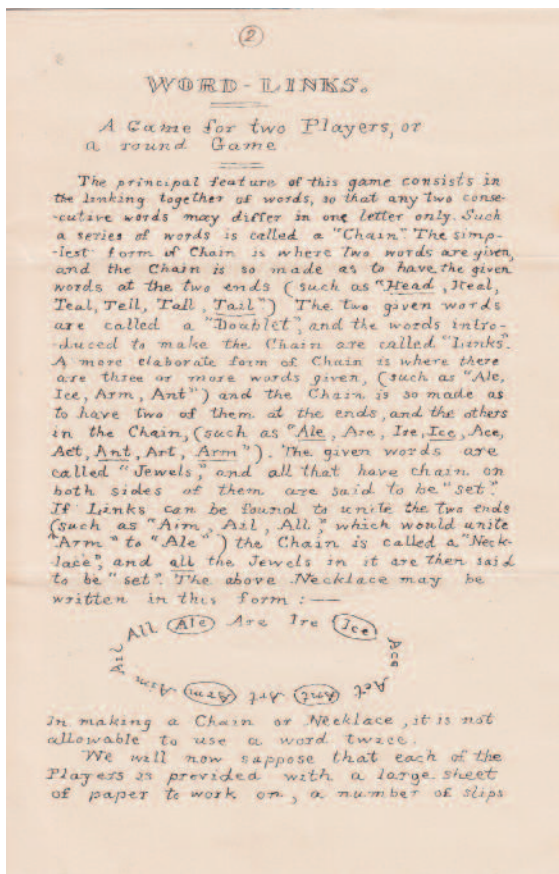 2
WORD-LINKS.
A Game for two Players, or
a round Game
The principal feature of this game consists in
the linking together of words, so that any two conse-
-cutive words may differ in one letter only. Such
a series of words is called a "Chain". The simp-
-lest form of Chain is where two words are given,
and the Chain is so made as to have the given
words at the two ends (such as "Head, Heal,
Teal, Tell, Tall, Tail") The two given words
are called a "Doublet", and the words intro-
-duced to make the Chain are called "Links".
A more elaborate form of Chain is where there
are three or more words given, (such as "Ale,
Ice, Arm, Ant") and the Chain is so made as
to have two of them at the ends, and the others
in the Chain, (such as "Ale, Are, Ire, Ice, Ace,
Act, Ant, Art, Arm"). The given words are
called "Jewels", and all that have chain on
both sides of them are said to be "set".
If Links can be found to unite the two ends
(such as "Aim, Ail, All", which would unite
"Arm" to "Ale") the Chain is called a "Neck-
lace", and all the Jewels in it are then said
to be "set". The above Necklace may be
written in this form : —
Ail All Ale Are Ire Ice Ace
Aim Arm Art Ant Act
In making a Chain or Necklace, it is not
allowable to use a word twice.
We will now suppose that each of the
Players is provided with a large sheet
of paper to work on, a number of slips